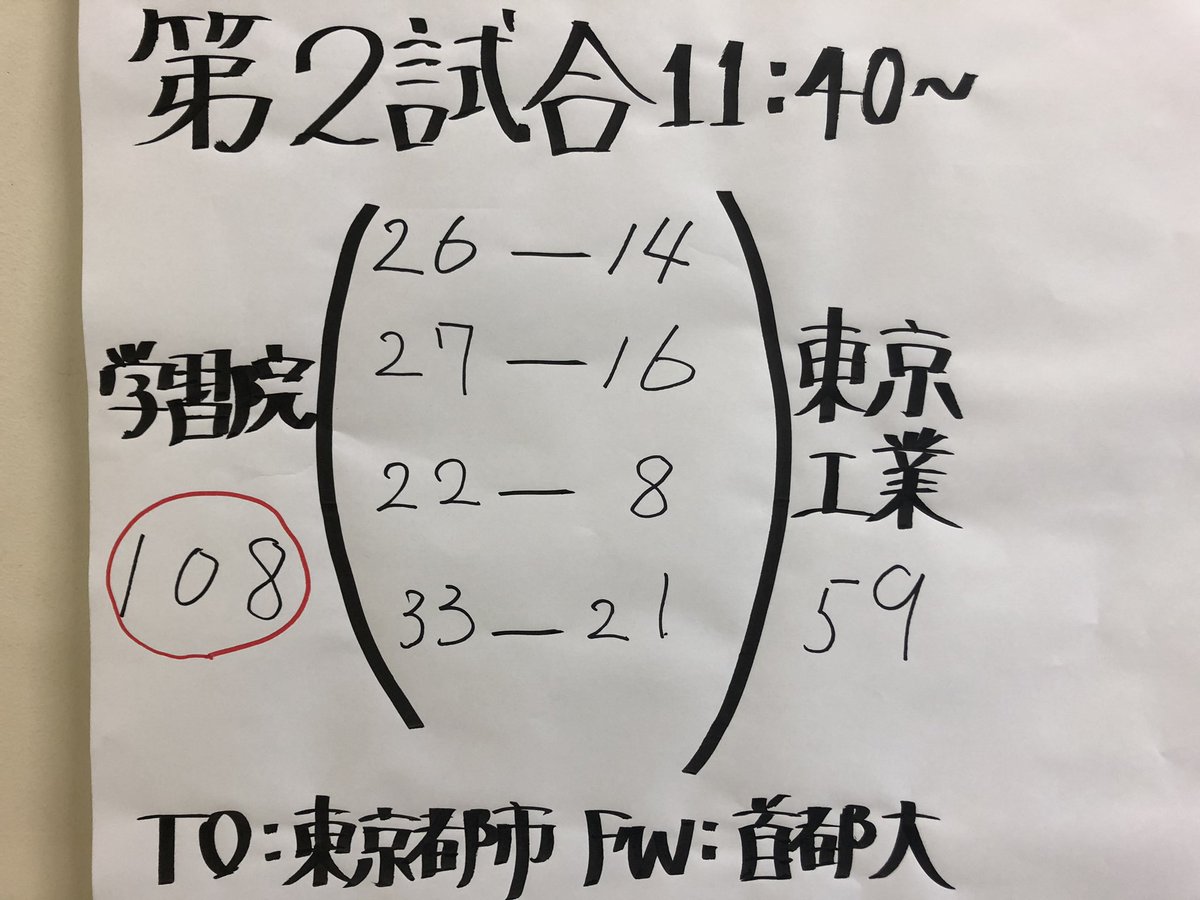 第2試合11:40~
26 — 14
27 — 16
22 — 8
33 — 21
学習院
108
東京
工業
59
TO:東京都市 FW:首都大